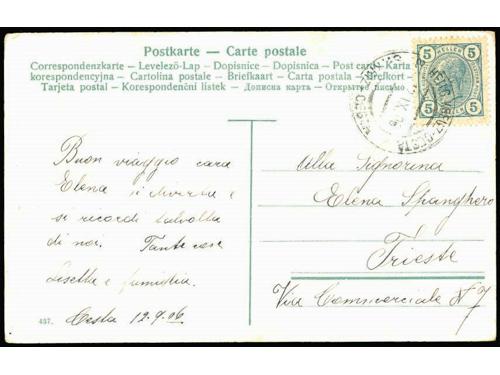 Postkarte — Carte postale
Correspondenzkarte — Levelező-Lap — Dopisnice — Dopisnica — Post card — Karta
korespondencyjna — Cartolina postale — Briefkaart — Carta postala — Brefkort —
Tarjeta postal — Korespondenční lístek — Дописна карта — Открытое письмо
5 HELLER 5
5 5
Buon viaggio cara
Elena si diverta e
si ricordi talvolta
di noi. Tante cose
Lisetta e famiglia.
Cesta 12.9.06
437.
Alla Signorina
Elena Spanghero
Trieste
Via Commerciale N 7